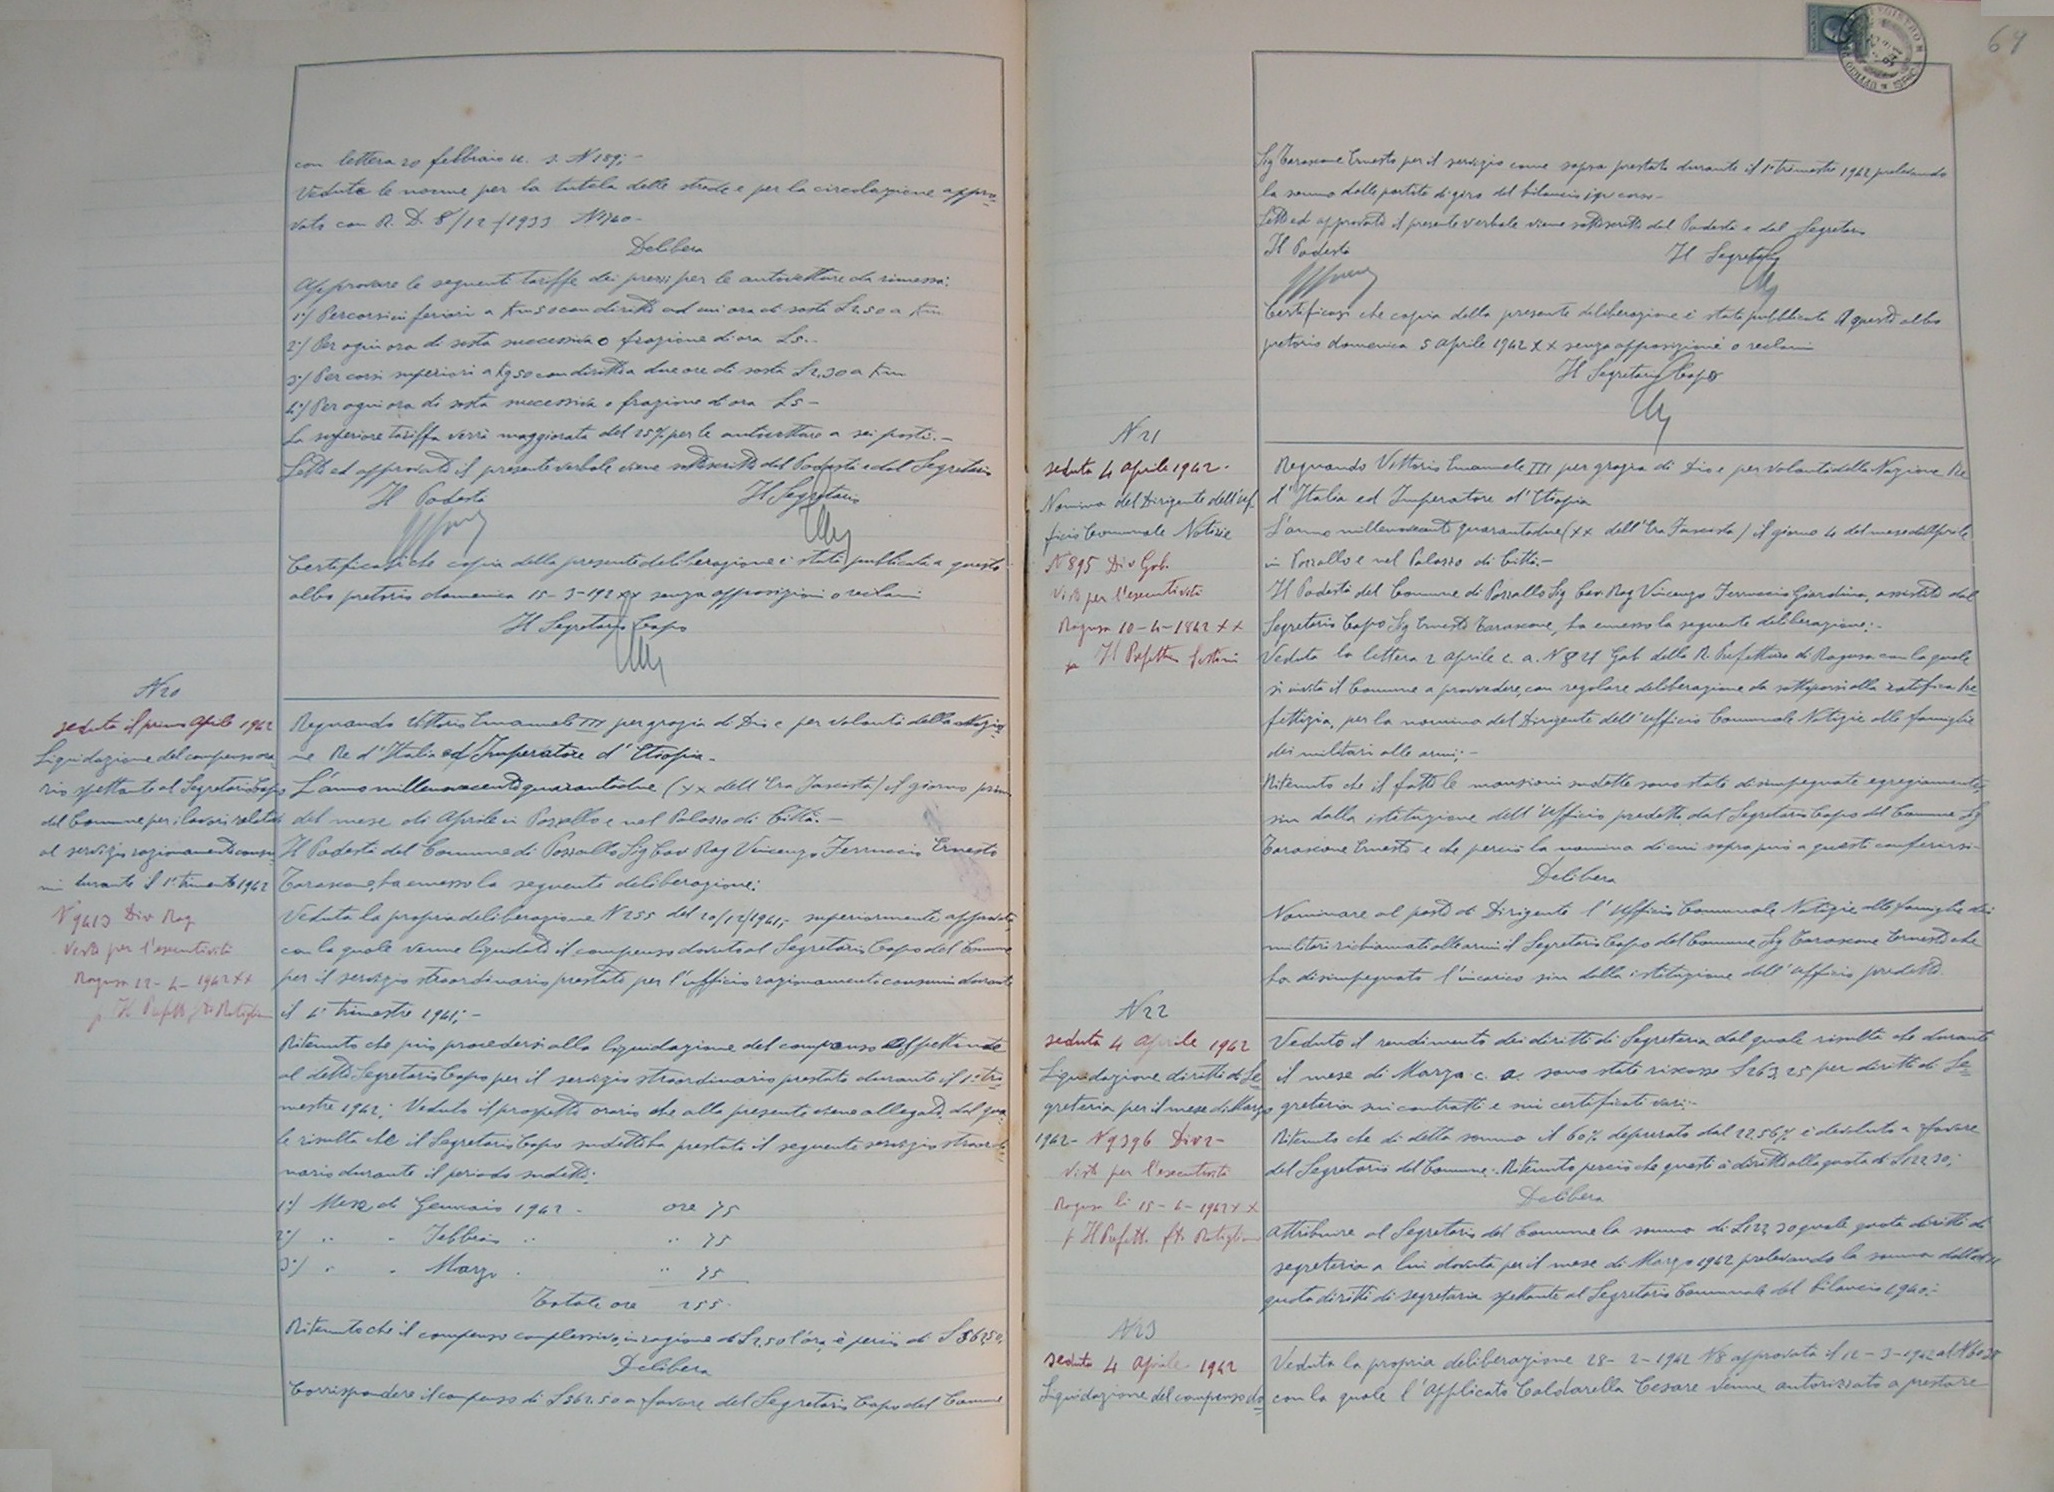 con lettera 20 febbraio u. s. N 189;-
Vedute le norme per la tutela delle strade e per la circolazione appro=
vate con R. D. 8/12/1933 N 1740-
Delibera
Approvare le seguenti tariffe dei prezzi per le autovetture da rimessa:
1°/ Percorsi inferiori a Km 50 con diritto ad un'ora di sosta £ 2,50 a Km
2°/ Per ogni ora di sosta successiva o frazione di ora £ 5.-
3°/ Percorsi superiori a Kg 50 con diritto a due ore di sosta £ 2,30 a Km
4°/ Per ogni ora di sosta successiva o frazione d'ora £ 5-
La superiore tariffa verrà maggiorata del 25% per le autovetture a sei posti.-
Letto ed approvato il presente verbale viene sottoscritto dal Podestà e dal Segretario
Il Podestà Il Segretario
Certificasi che copia della presente deliberazione è stata pubblicata a questo
albo pretorio domenica 15-3-192 XX senza opposizioni o reclami
Il Segretario Capo
N 20
seduta il primo Aprile 1942
Liquidazione del compenso ora
rio spettante al Segretario Capo
del Comune per i lavori relativi
al servizio razionamento consu
mi durante il 1° trimestre 1942
N 9413 Div Rag
Visto per l'esecutività
Ragusa 22-4-1942 XX
p Il Prefetto
Regnando Vittorio Emanuele III per grazia di Dio e per volontà della Nazio
ne Re d'Italia ed Imperatore d'Etiopia-
L'anno millenovecentoquarantadue (XX dell'Era Fascista) il giorno primo
del mese di Aprile in Pozzallo e nel Palazzo di Città.-
Il Podestà del Comune di Pozzallo Sig Cav Rag Vincenzo Ferruccio Ernesto
Tarascone, ha emesso la seguente deliberazione:
Veduta la propria deliberazione N 255 del 20/12/1941,- superiormente approvata,
con la quale venne liquidato il compenso dovuto al Segretario Capo del Comune
per il servizio straordinario prestato per l'ufficio razionamento consumi durante
il 4° trimestre 1941;-
Ritenuto che può procedersi alla liquidazione del compenso spettante
al detto Segretario Capo per il servizio straordinario prestato durante il 1° tri=
mestre 1942; Veduto il prospetto orario che alla presente viene allegato, dal qua
le risulta che il Segretario Capo sudetto ha prestato il seguente servizio straordi
nario durante il periodo sudetto:
1°/ Mese di Gennaio 1942 - ore 75
2°/ " " Febbraio " " 75
3°/ " " Marzo " " 75
Totale ore 255-
Ritenuto che il compenso complessivo, in ragione di £ 2,50 l'ora, è perciò di £ 562,50,
Delibera
Corrispondere il compenso di £ 562,50 a favore del Segretario Capo del Comune
64
Sig Tarascone Ernesto per il servizio come sopra prestato durante il 1° trimestre 1942 prelevando
la somma dalle partite di giro del bilancio in corso-
Letto ed approvato il presente verbale viene sottoscritto dal Podestà e dal Segretario
Il Podestà Il Segretario
Certificasi che copia della presente deliberazione è stata pubblicata a questo albo
pretorio domenica 5 Aprile 1942 XX senza opposizioni o reclami
Il Segretario Capo
N 21
seduta 4 Aprile 1942-
Nomina del Dirigente dell'uf
ficio Comunale Notizie
N 895 Div Gab.
Visto per l'esecutività
Ragusa 10-4-1842 XX
Il Prefetto
Regnando Vittorio Emanuele III per grazia di Dio e per volontà della Nazione Re
d'Italia ed Imperatore d'Etiopia
L'anno millenovecento quarantadue (XX dell'Era Fascista) il giorno 4 del mese di Aprile
in Pozzallo e nel Palazzo di Città.-
Il Podestà del Comune di Pozzallo Sig Cav. Rag Vincenzo Ferruccio Giardina, assistito dal
Segretario Capo Sig Ernesto Tarascone, ha emesso la seguente deliberazione:-
Veduta la lettera 2 Aprile c. a. N 821 Gab della R. Prefettura di Ragusa con la quale
si invita il Comune a provvedere, con regolare deliberazione da sottoporsi alla ratifica Pre
fettizia, per la nomina del Dirigente dell'Ufficio Comunale Notizie alle famiglie
dei militari alle armi;-
Ritenuto che il fatto le mansioni sudette sono state disimpegnate egregiamente,
sin dalla istituzione dell'Ufficio predetto, dal Segretario Capo del Comune Sig
Tarascone Ernesto e che perciò la nomina di cui sopra può a questi conferirsi-
Delibera
Nominare al posto di Dirigente l'Ufficio Comunale Notizie alle famiglie dei
militari richiamati alle armi il Segretario Capo del Comune Sig Tarascone Ernesto che
ha disimpegnato l'incarico sin dalla istituzione dell'Ufficio predetto.
N 22
seduta 4 Aprile 1942
Liquidazione diritti di Se=
greteria per il mese di Marzo
1942- N 9396 Div 2-
Visto per l'esecutività
Ragusa lì 15-4-1942 XX
p Il Prefetto
Veduto il rendimento dei diritti di Segreteria dal quale risulta che durante
il mese di Marzo c. a. sono state riscosse £ 263,25 per diritti di Se=
greteria sui contratti e sui certificati vari:-
Ritenuto che di detta somma il 60% depurato dal 22,56% è devoluto a favore
del Segretario del Comune: Ritenuto perciò che questi à diritto alla quota di £ 122,30;
Delibera
Attribuire al Segretario del Comune la somma di £ 122,30 quale quota diritti di
segreteria a lui dovuta per il mese di Marzo 1942 prelevando la somma dalla
quota diritti di segreteria spettante al Segretario Comunale del bilancio 1940:-
N 23
seduta 4 Aprile 1942
Liquidazione del compenso do=
Veduta la propria deliberazione 28-2-1942 N 8 approvata il 12-3-1942 al N 6038
con la quale l'Applicato Caldarella Cesare venne autorizzato a prestare